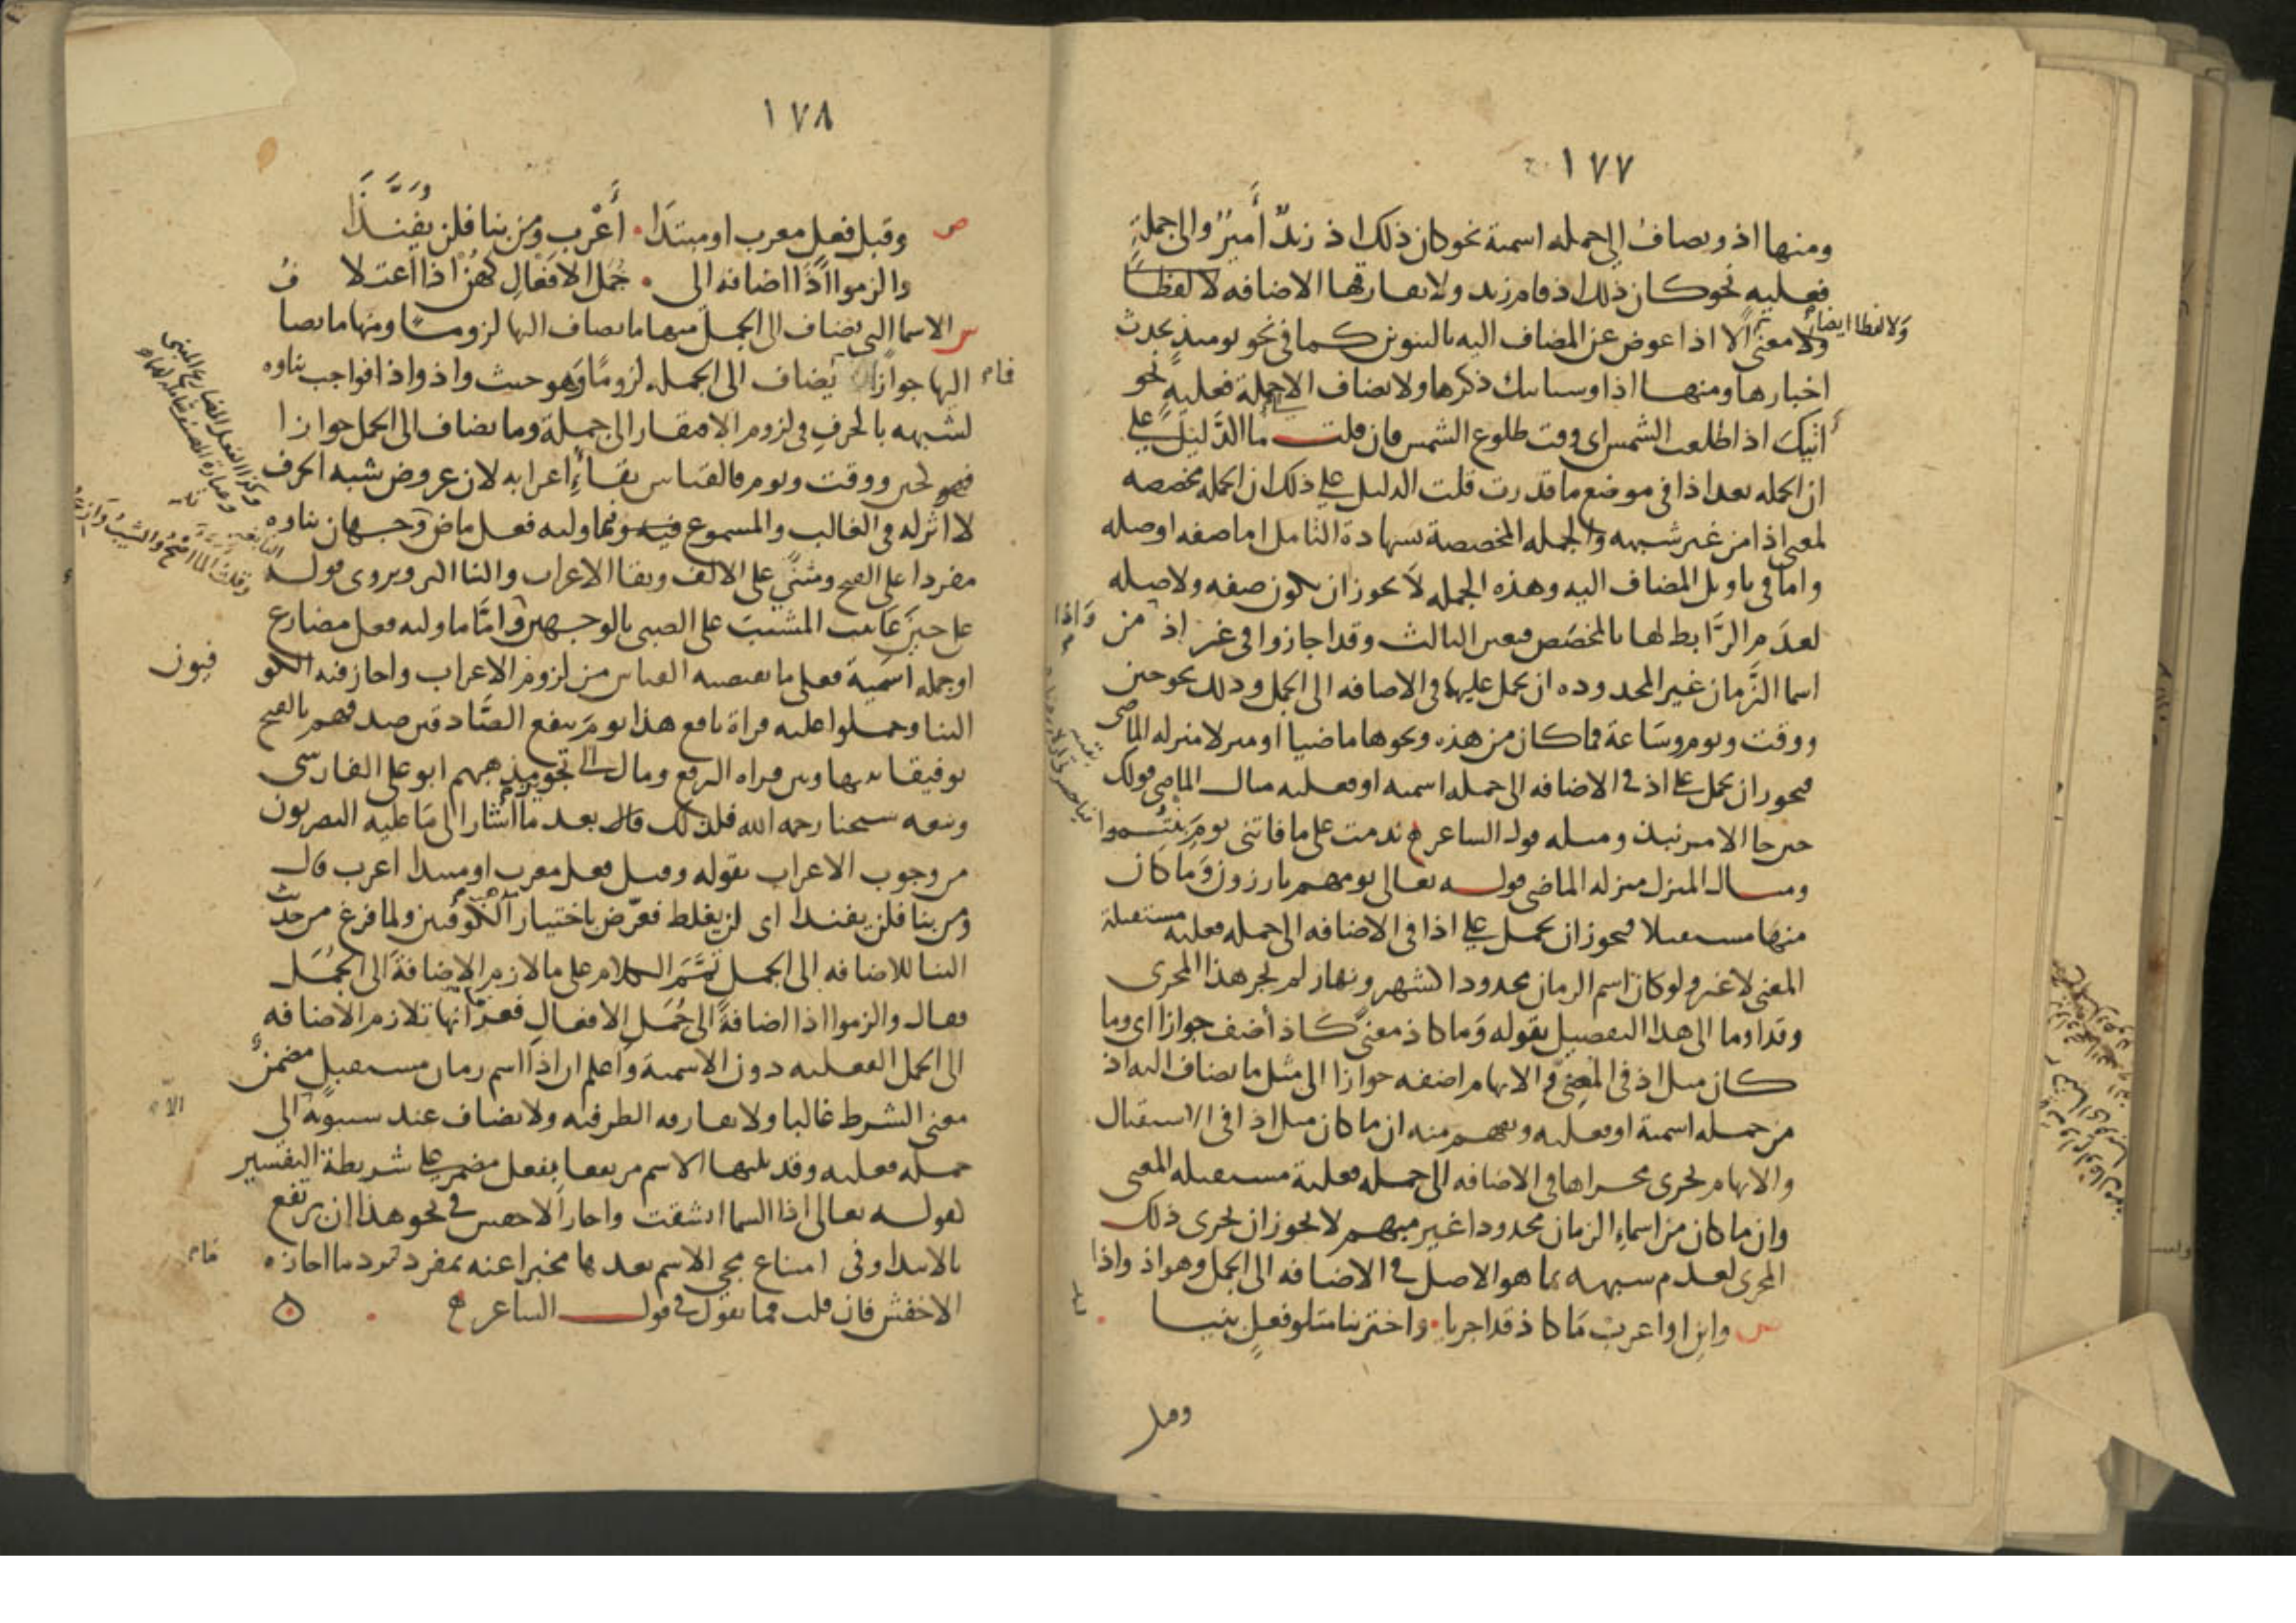 ١٧٧
ومنها اذ ويضاف الى جمله اسمية نحو كان ذلك اذ زيدٌ أميرٌ والى جملةٍ
فعليه نحو كان ذلك اذ قام زيد ولا يفارقها الاضافه لا لفظا
ولا معنى الا اذا عوض عن المضاف اليه بالتنوين كما فى نحو يومئذٍ تحدث
ولا لفظا ايضا
اخبارها ومنها اذا وسياتيك ذكرها ولا يضاف الا جملة فعلية نحو
أتيك اذا طلعت الشمس اى وقت طلوع الشمس فان قلت ما الدليل على
ان الجمله بعد اذا فى موضع ما قدرت قلت الدليل على ذلك ان الجمله مخصصه
لمعنى اذا من غير شبهه والجمله المخصصة بشهادة التامل اما صفه او صله
واما فى تاويل المضاف اليه وهذه الجمله لا يجوز ان يكون صفه ولا صله
لعدم الرابط لها بالمخصص فتعين الثالث وقد اجازوا فى غير اذ من
واذا
اسما الزمان غير المحدوده ان يحمل عليها فى الاضافه الى الجمل وذلك نحو حين
ووقت ويوم وساعة فما كان من هذه ونحوها ماضيا او منزلا منزله الماضى
فيجوز ان يحمل على اذ فى الاضافه الى جمله اسميه او فعليه مثال الماضى قولك
حين جا الامير نبذ ومثله قول الشاعر ندمت على ما فاتنى يوم بنتموا
ومثال المنزل منزله الماضى قوله تعالى يوم هم بارزون وما كان
منها مستقبلا فيجوز ان يحمل على اذا فى الاضافه الى جمله فعليه مستقبلة
المعنى لا غير ولو كان اسم الزمان محدودا كشهر ونهار لم يجر هذا المجرى
وقد اوما الى هذا التفصيل بقوله وما كاذ معنى كاذ أضف جوازا اى وما
كان مثل اذ فى المعنى و الابهام اضفه جوازا الى مثل ما يضاف اليه اذ
من جمله اسمية او فعليه ويفهم منه ان ما كان مثل اذا فى الاستقبال
والابهام يجرى مجراها فى الاضافه الى جمله فعلية مستقبله المعنى
وان ما كان من اسماء الزمان محدودا غير مبهم لا يجوز ان يجرى ذلك
المجرى لعدم شبهه بما هو الاصل فى الاضافه الى الجمل وهو اذ واذا
ص وابن او اعرب ما كاذ قد اجريا • واختر بنا متلو فعلٍ بنيا
وقبل
١٧٨
ص وقبل فعل معرب او مبتدا • أعرب ومن بنا فلن يفندا
والزموا اذا اضافه الى • جمل الافعال كهن اذا اعتلا
س الاسما التى تضاف الى الجمل منها ما يضاف اليها لزوما ومنها ما يضا
اليها جوازا يضاف الى الجمله لزوما وهو حيث واذ واذا فواجب بناوه
لشبهه بالحرف فى لزوم الافتقار الى جملة وما يضاف الى الجمل جوازا
فهو لحين ووقت ويوم فالقياس بقاء اعرابه لان عروض شبه الحرف
لا اثر له فى الغالب والمسموع فيه وفيما وليه فعل ماض وجهان بناوه
مفردا على الفتح ومثنى على الالف وبقا الاعراب والبنا اكثر ويروى قوله
على حين عاتبت المشيب على الصبى بالوجهين واما ما وليه فعل مضارع
او جمله اسمية فعلى ما يقتضيه القياس من لزوم الاعراب واجاز فيه الكو
فيون
البنا وحملوا عليه قراة نافع هذا يوم ينفع الصادقين صدقهم بالفتح
توفيقا بينها وبين قراه الرفع ومال الى تجويز مذهبهم ابو على الفارسى
وتبعه شيخنا رحمه الله فلذلك قال بعد ما اشار الى ما عليه البصريون
من وجوب الاعراب بقوله وقبل فعل معرب او مبتدا اعرب قال
ومن بنا فلن يفندا اى لن يغلط فعرض باختيار مذهب الكوفيين ولما فرغ من حديث
البنا للاضافه الى الجمل تمم الكلام على ما لازم الاضافة الى الجمل
فقال والزموا اذا اضافة الى جمل الافعال فعرف انها تلازم الاضافه
الى الجمل الفعليه دون الاسمية واعلم ان اذا اسم زمان مستقبل مضمن
معنى الشرط غالبا ولا يفارقه الظرفيه ولا يضاف عند سيبويه الى
الا
جمله فعليه وقد يليها الاسم مرتفعا بفعل مضمر على شريطة التفسير
كقوله تعالى اذا السما انشقت واجاز الاخفش فى نحو هذا ان يرتفع
بالابتدا وفى امتناع مجى الاسم بعدها مخبرا عنه بمفرد ترد ما اجازه
الاخفش فان قلت فما تقول فى قول الشاعر